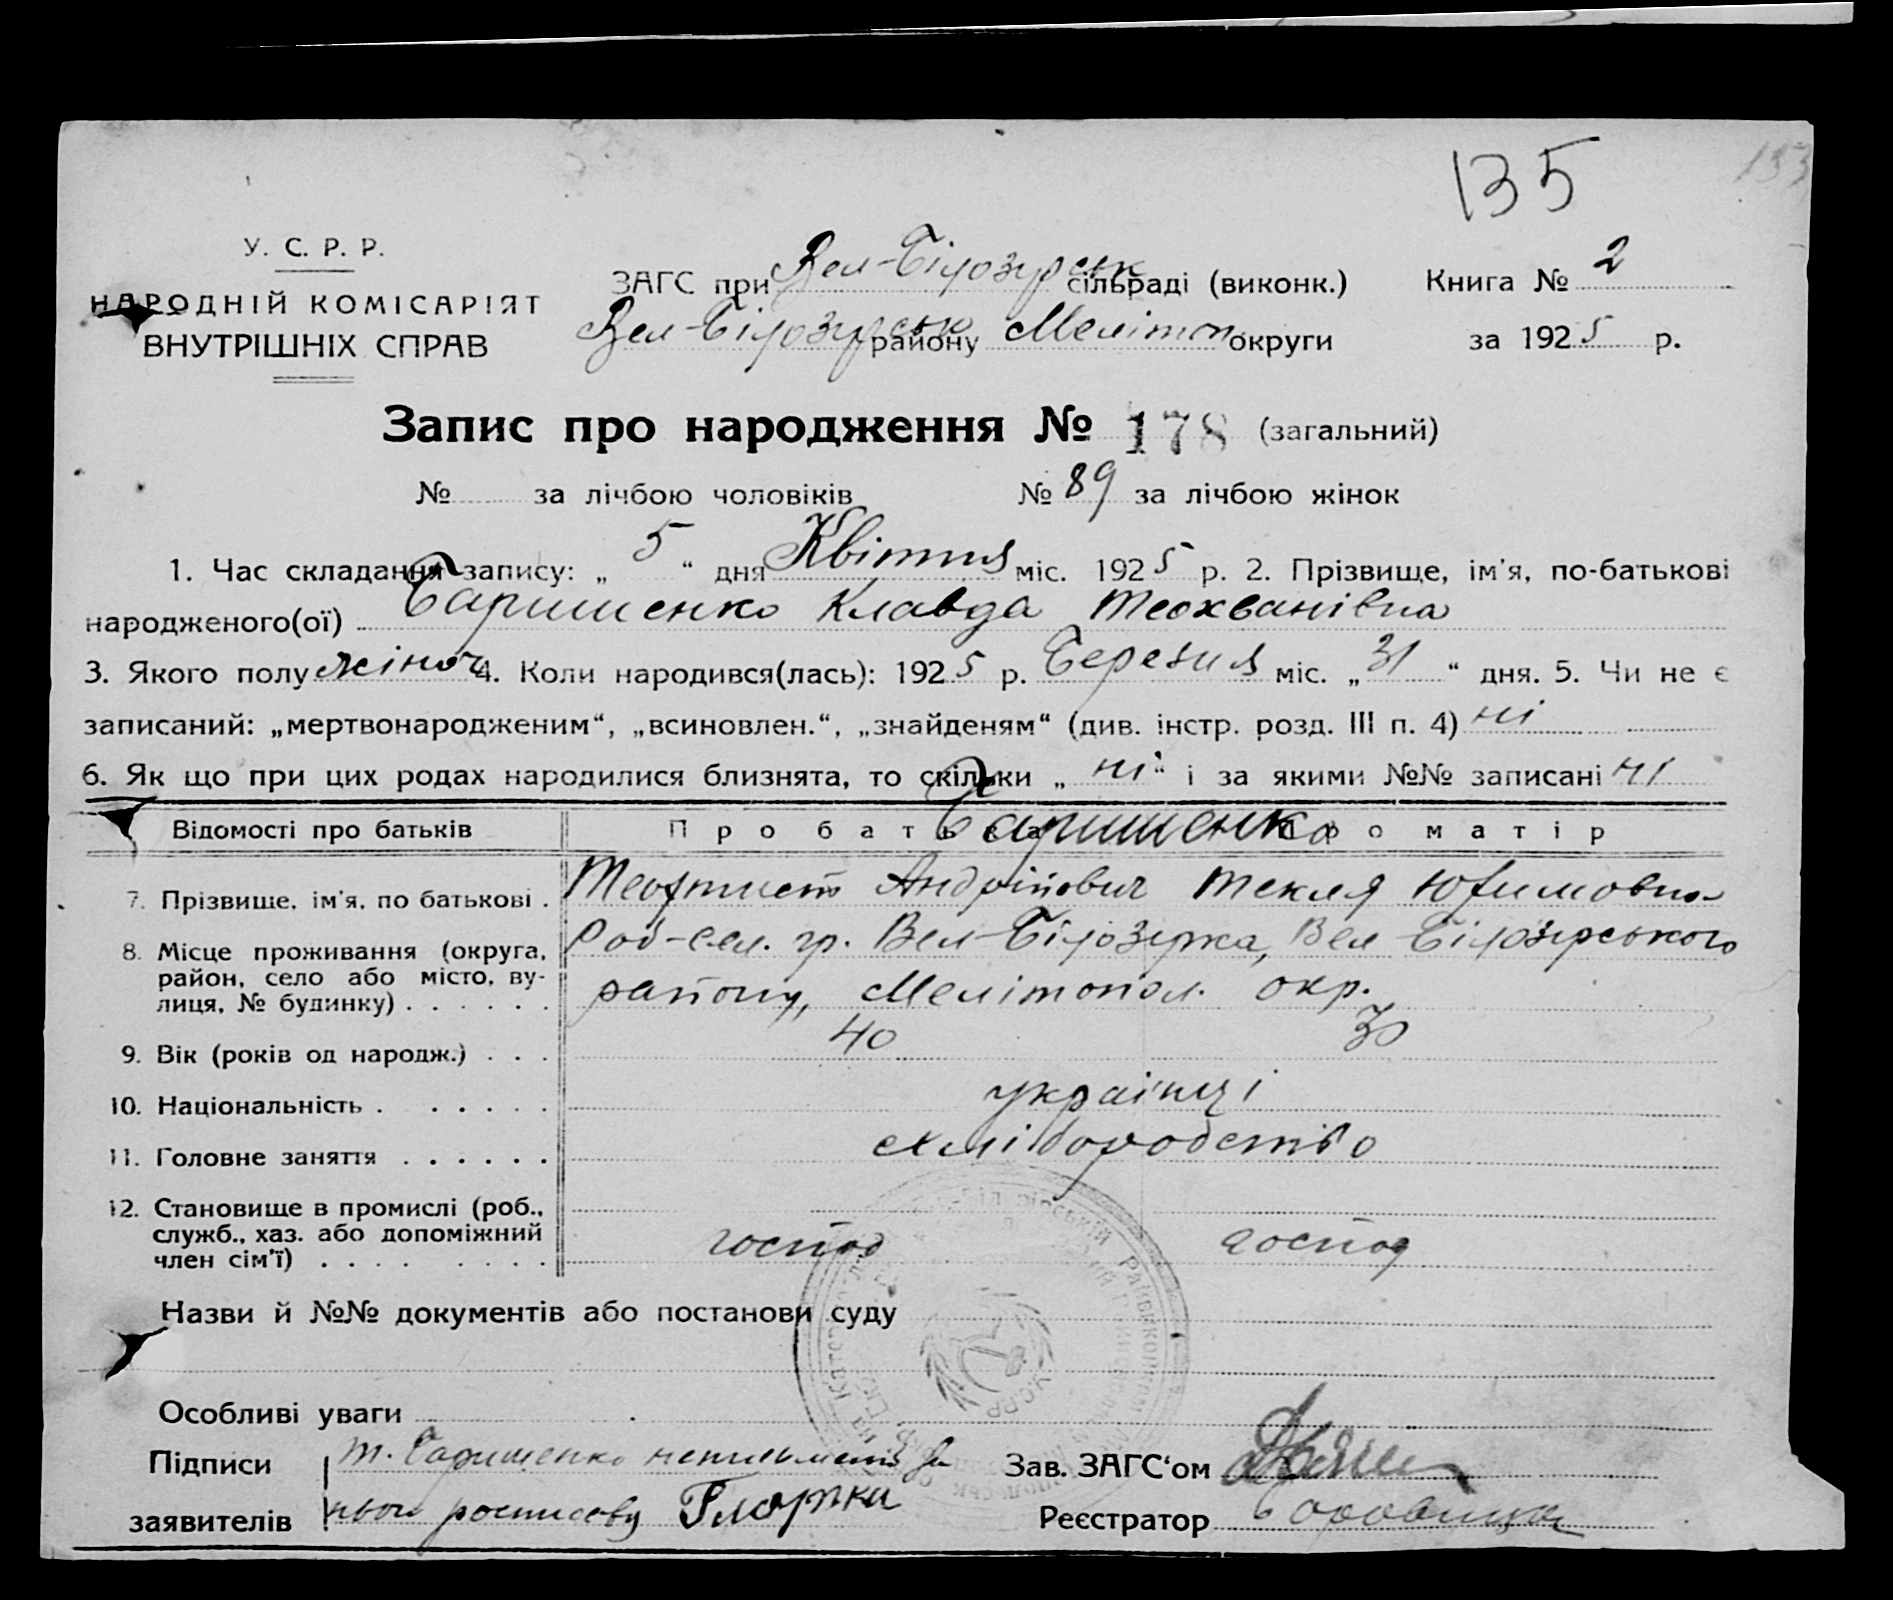 135
У. С. Р. Р.
НАРОДНІЙ КОМІСАРІЯТ
ВНУТРІШНІХ СПРАВ
ЗАГС при Вел-Білозурськ сільраді (виконк.) Книга № 2
Вел-Білозурськ району Мелітоп округи за 1925 р.
Запис про народження № 178 (загальний)
№ за лічбою чоловіків № 89 за лічбою жінок
1. Час складання запису: „ 5 “ дня Квітня міс. 1925 р. 2. Прізвище, ім'я, по-батькові
народженого(ої) Баришенко Клавда Теохванівна
3. Якого полу жіноч 4. Коли народився(лась): 1925 р. Березня міс. „ 31 “ дня. 5. Чи не є
записаний: „мертвонародженим“, „всиновлен.“, „знайденям“ (див. інстр. розд. III п. 4) ні
6. Як що при цих родах народилися близнята, то скільки „ ні “ і за якими №№ записані ні
Відомості про батьків Про батька Про матір
Баришенко
7. Прізвище, ім'я, по батькові . Теофтист Андрійович Текля Юхимовна
8. Місце проживання (округа, район, село або місто, вулиця, № будинку) . . . . . . Вел-Білозірка, Вел Білозірського
району, Мелітопол. окр.
9. Вік (років од народж.) . . . 40 30
10. Національність . . . . . . українці
11. Головне заняття . . . . . . хліборобство
12. Становище в промислі (роб., служб., хаз. або допоміжний член сім'ї) . . . . . . . . господ господ
Назви й №№ документів або постанови суду
Особливі уваги
Підписи Т. Баришенко неписьмений за Зав. ЗАГС'ом
заявителів нього росписався Реєстратор